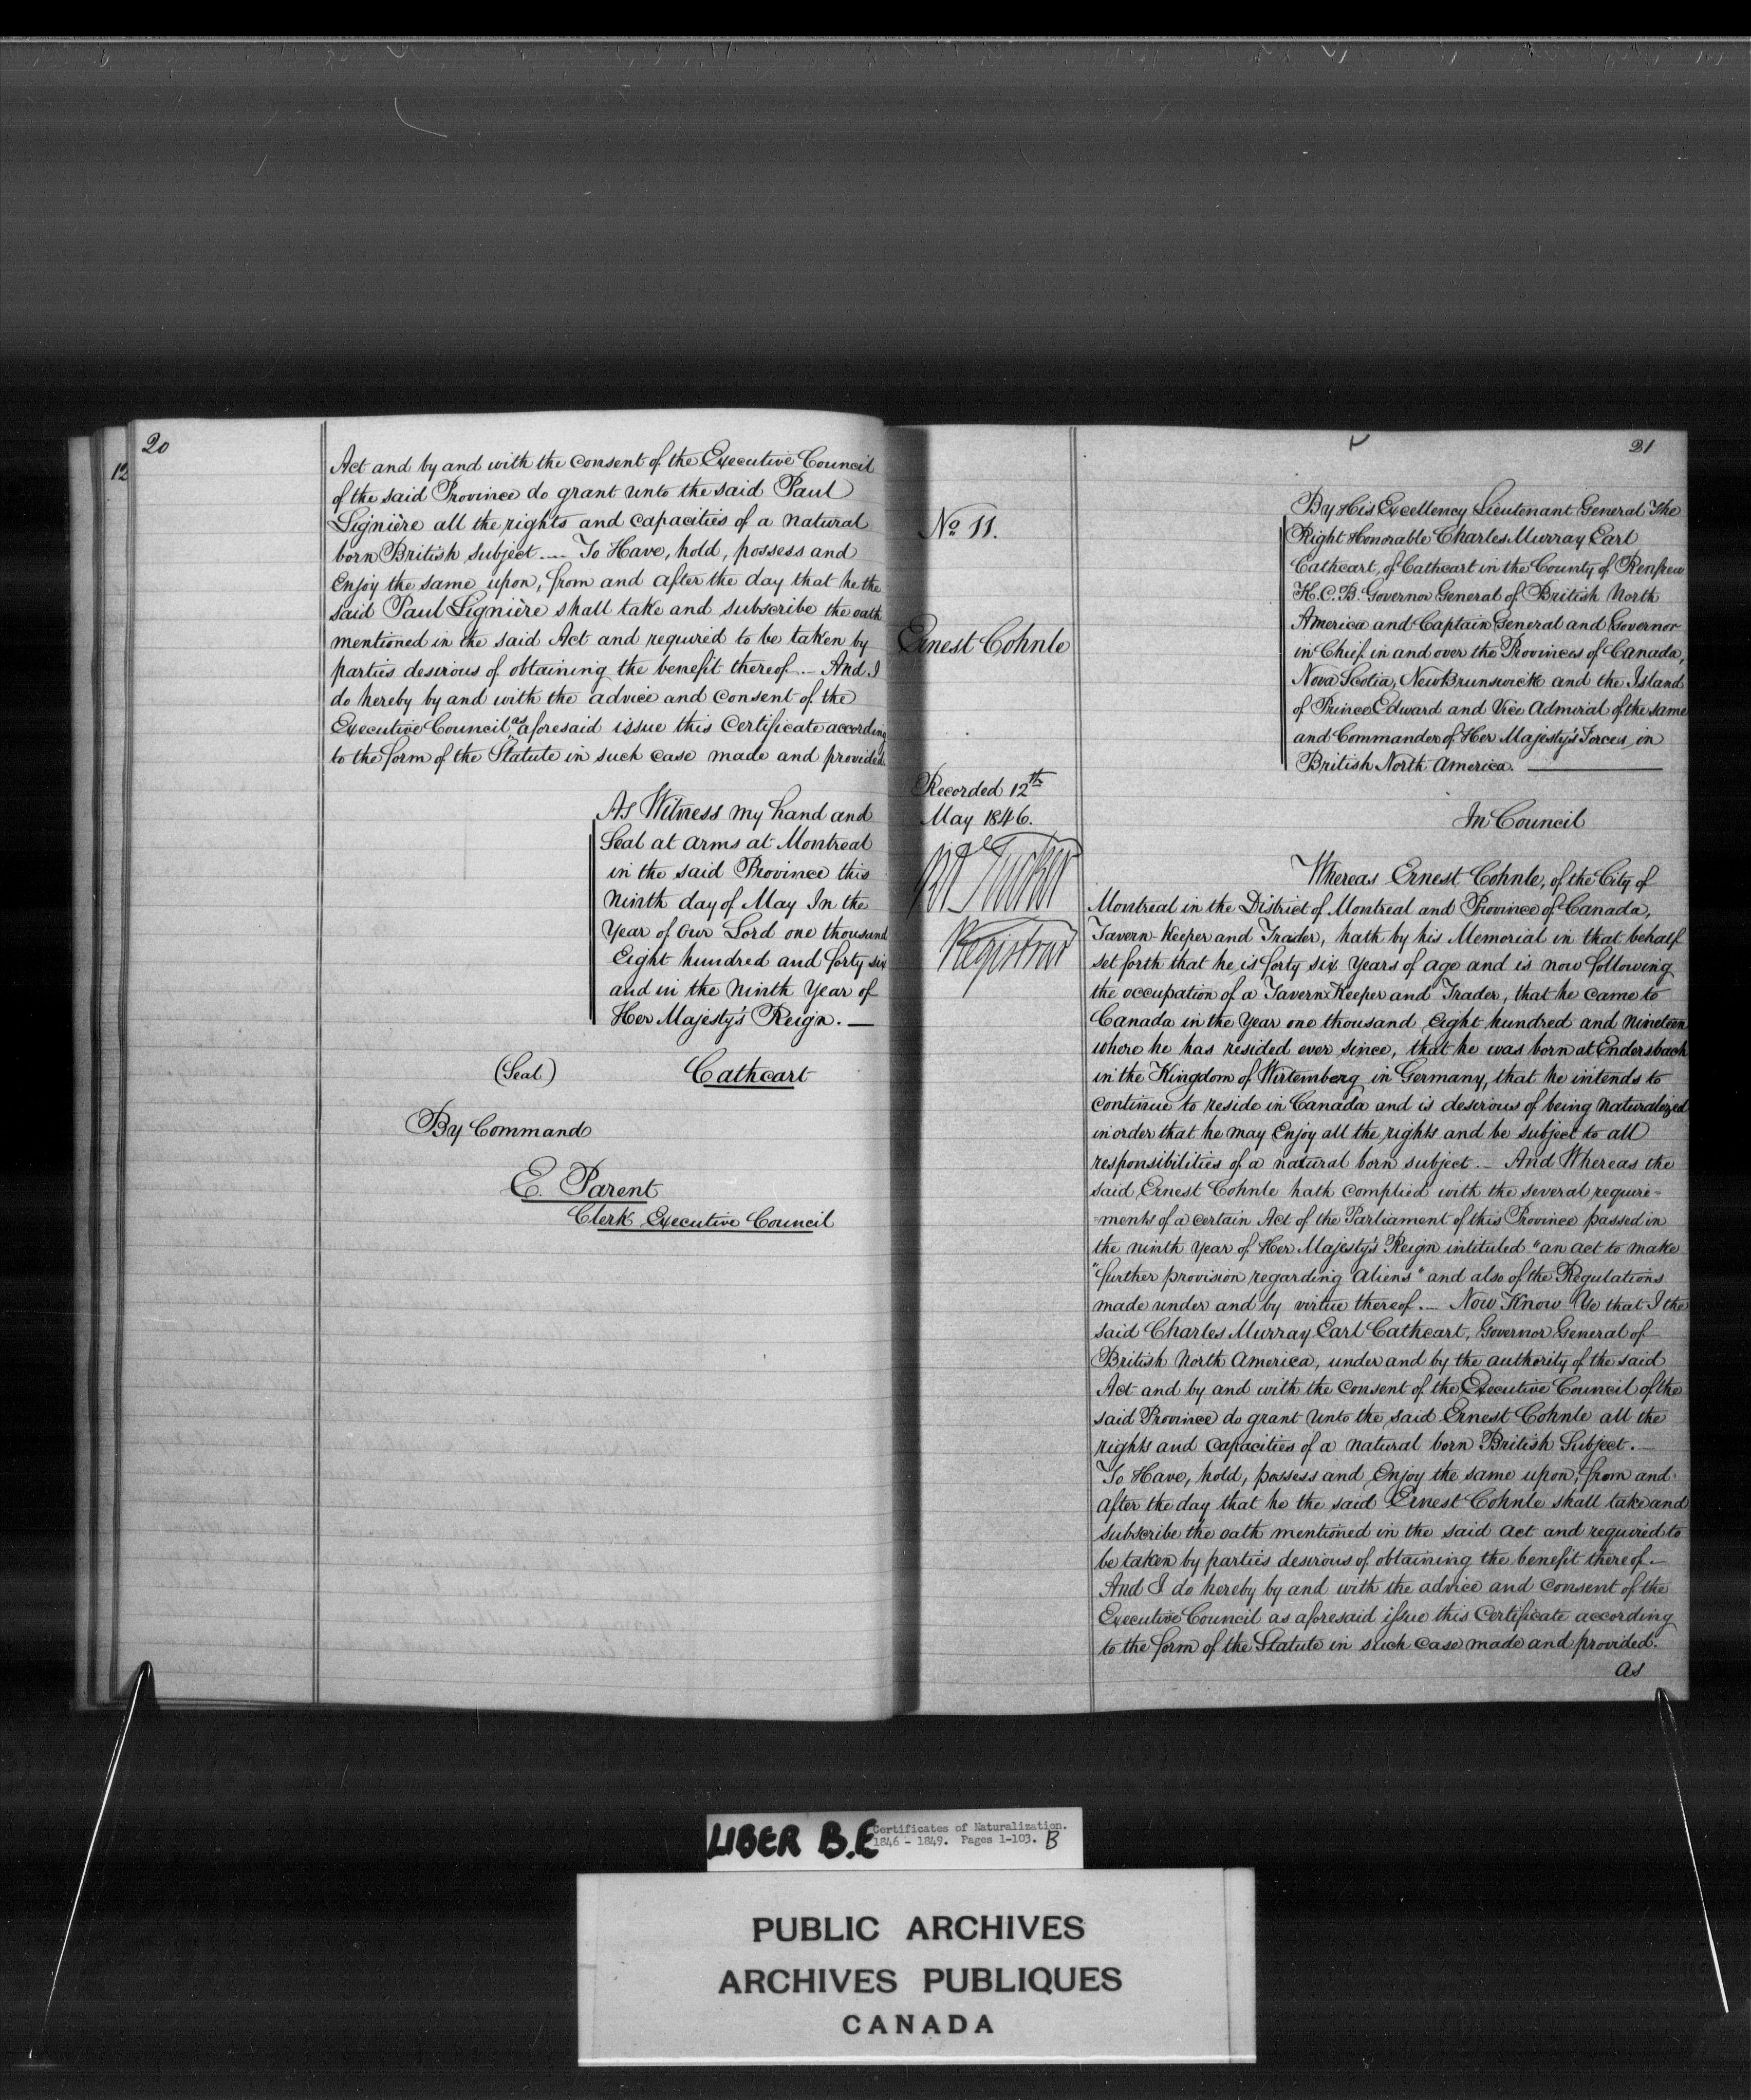 20
12
Act and by and with the consent of the Executive Council
of the said Province do grant unto the said Paul
Lignière all the rights and capacities of a natural
born British Subject. — To Have, hold, possess and
Enjoy the same upon, from and after the day that he the
said Paul Lignière shall take and subscribe the oath
mentioned in the said Act and required to be taken by
parties desirous of obtaining the benefit thereof. — And I
do hereby by and with the advice and consent of the
Executive Council as aforesaid issue this Certificate according
to the form of the Statute in such case made and provided.
As Witness my hand and
Seal at arms at Montreal
in the said Province this
Ninth day of May In the
Year of Our Lord one thousand
Eight hundred and forty six
and in the Ninth Year of
Her Majesty's Reign. —
(Seal) Cathcart
By Command
E. Parent
Clerk Executive Council
21
No 11.
Ernest Cohnle
Recorded 12th
May 1846.
Registrar
By His Excellency Lieutenant General The
Right Honorable Charles Murray Earl
Cathcart, of Cathcart in the County of Renfrew
K.C.B. Governor General of British North
America and Captain General and Governor
in Chief in and over the Provinces of Canada,
Nova Scotia, New Brunswick and the Island
of Prince Edward and Vice Admiral of the same
and Commander of Her Majesty's Forces in
British North America. —
In Council
Whereas Ernest Cohnle, of the City of
Montreal in the District of Montreal and Province of Canada,
Tavern-Keeper and Trader, hath by his Memorial in that behalf
set forth that he is forty six years of age and is now following
the occupation of a Tavern Keeper and Trader, that he came to
Canada in the Year one thousand Eight hundred and Nineteen
where he has resided ever since, that he was born at Endersbach
in the Kingdom of Wirtemberg in Germany, that he intends to
continue to reside in Canada and is desirous of being naturalized
in order that he may Enjoy all the rights and be subject to all
responsibilities of a natural born subject. — And Whereas the
said Ernest Cohnle hath complied with the several require=
=ments of a certain Act of the Parliament of this Province passed in
the ninth year of Her Majesty's Reign intituled "an act to make
"further provision regarding Aliens" and also of the Regulations
made under and by virtue thereof. — Now Know Ye that I the
said Charles Murray Earl Cathcart, Governor General of
British North America, under and by the authority of the said
Act and by and with the consent of the Executive Council of the
said Province do grant unto the said Ernest Cohnle all the
rights and capacities of a natural born British Subject. —
To Have, hold, possess and Enjoy the same upon, from and
after the day that he the said Ernest Cohnle shall take and
subscribe the oath mentioned in the said Act and required to
be taken by parties desirous of obtaining the benefit thereof. —
And I do hereby by and with the advice and consent of the
Executive Council as aforesaid issue this Certificate according
to the form of the Statute in such case made and provided.
as
LIBER B.E
Certificates of Naturalization.
1846 - 1849. Pages 1-103. B
PUBLIC ARCHIVES
ARCHIVES PUBLIQUES
CANADA